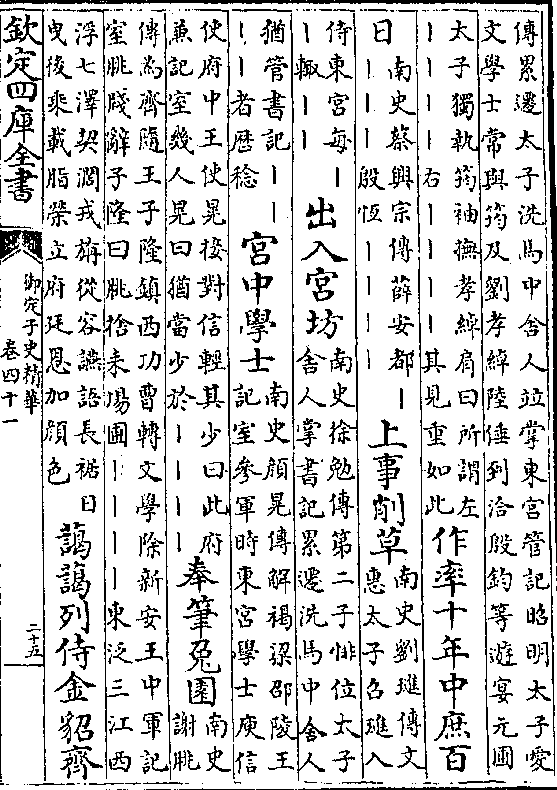 傳累遷太子洗馬中舍人竝掌東宮管記昭明太子愛
文學士常與筠及劉孝綽陸倕到洽殷鈞等遊宴元圃
太子獨執筠袖撫孝綽肩曰所謂左
｜｜｜｜右｜｜｜｜其見重如此
作率十年中庶百
日
南史蔡興宗傳薛安都｜
｜｜｜｜殷恆｜｜｜｜
上事削草
南史劉璡傳文
惠太子召璡入
侍東宮每｜
｜｜輙｜｜
出入宮坊
南史徐勉傳第二子悱位太子
舍人掌書記累遷洗馬中舍人
猶管書記｜｜
｜｜者歴稔
宮中學士
南史顔晃傳解褐梁邵陵王
記室參軍時東宮學士庾信
使府中王使晃接對信輕其少曰此府
兼記室幾人晃曰猶當少於｜｜｜｜
奉筆兔園
南史
謝朓
傳為齊隨王子隆鎮西功曹轉文學除新安王中軍記
室朓牋辭子隆曰朓捨耒場圃｜｜｜｜東泛三江西
浮七澤契濶戎旃從容讌語長裾日
曳後乘載脂榮立府廷恩加顔色
藹藹列侍金貂齊
欽定四庫全書
御定子史精華
卷四十一
二十五